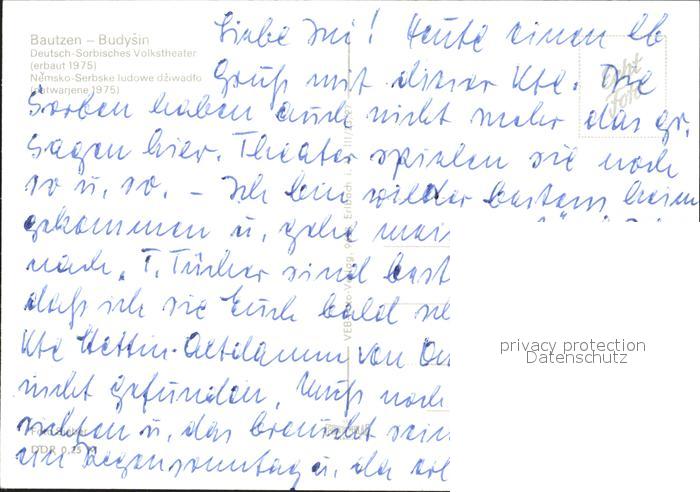 Bautzen – Budyšin
Deutsch-Sorbisches Volkstheater
(erbaut 1975)
Němsko-Serbske ludowe dźiwadło
(natwarjene 1975)
Echt Foto
Liebe Mi! Heute einen lb
Gruß mit dieser Kte. Die
Sorben haben auch nicht mehr das gr.
Sagen hier. Theater spielen sie noch
so u. so. – Ich bin wieder bestens heim
gekommen u. gehe
nach. T. Tücher sind best
daß ich sie Euch bald
Kte Stettin-Altdamm von
nicht gefunden. Muß noch
u. das braucht sein
ein Regensonntag u. da
VEB
DDR 0,25
privacy protection
Datenschutz